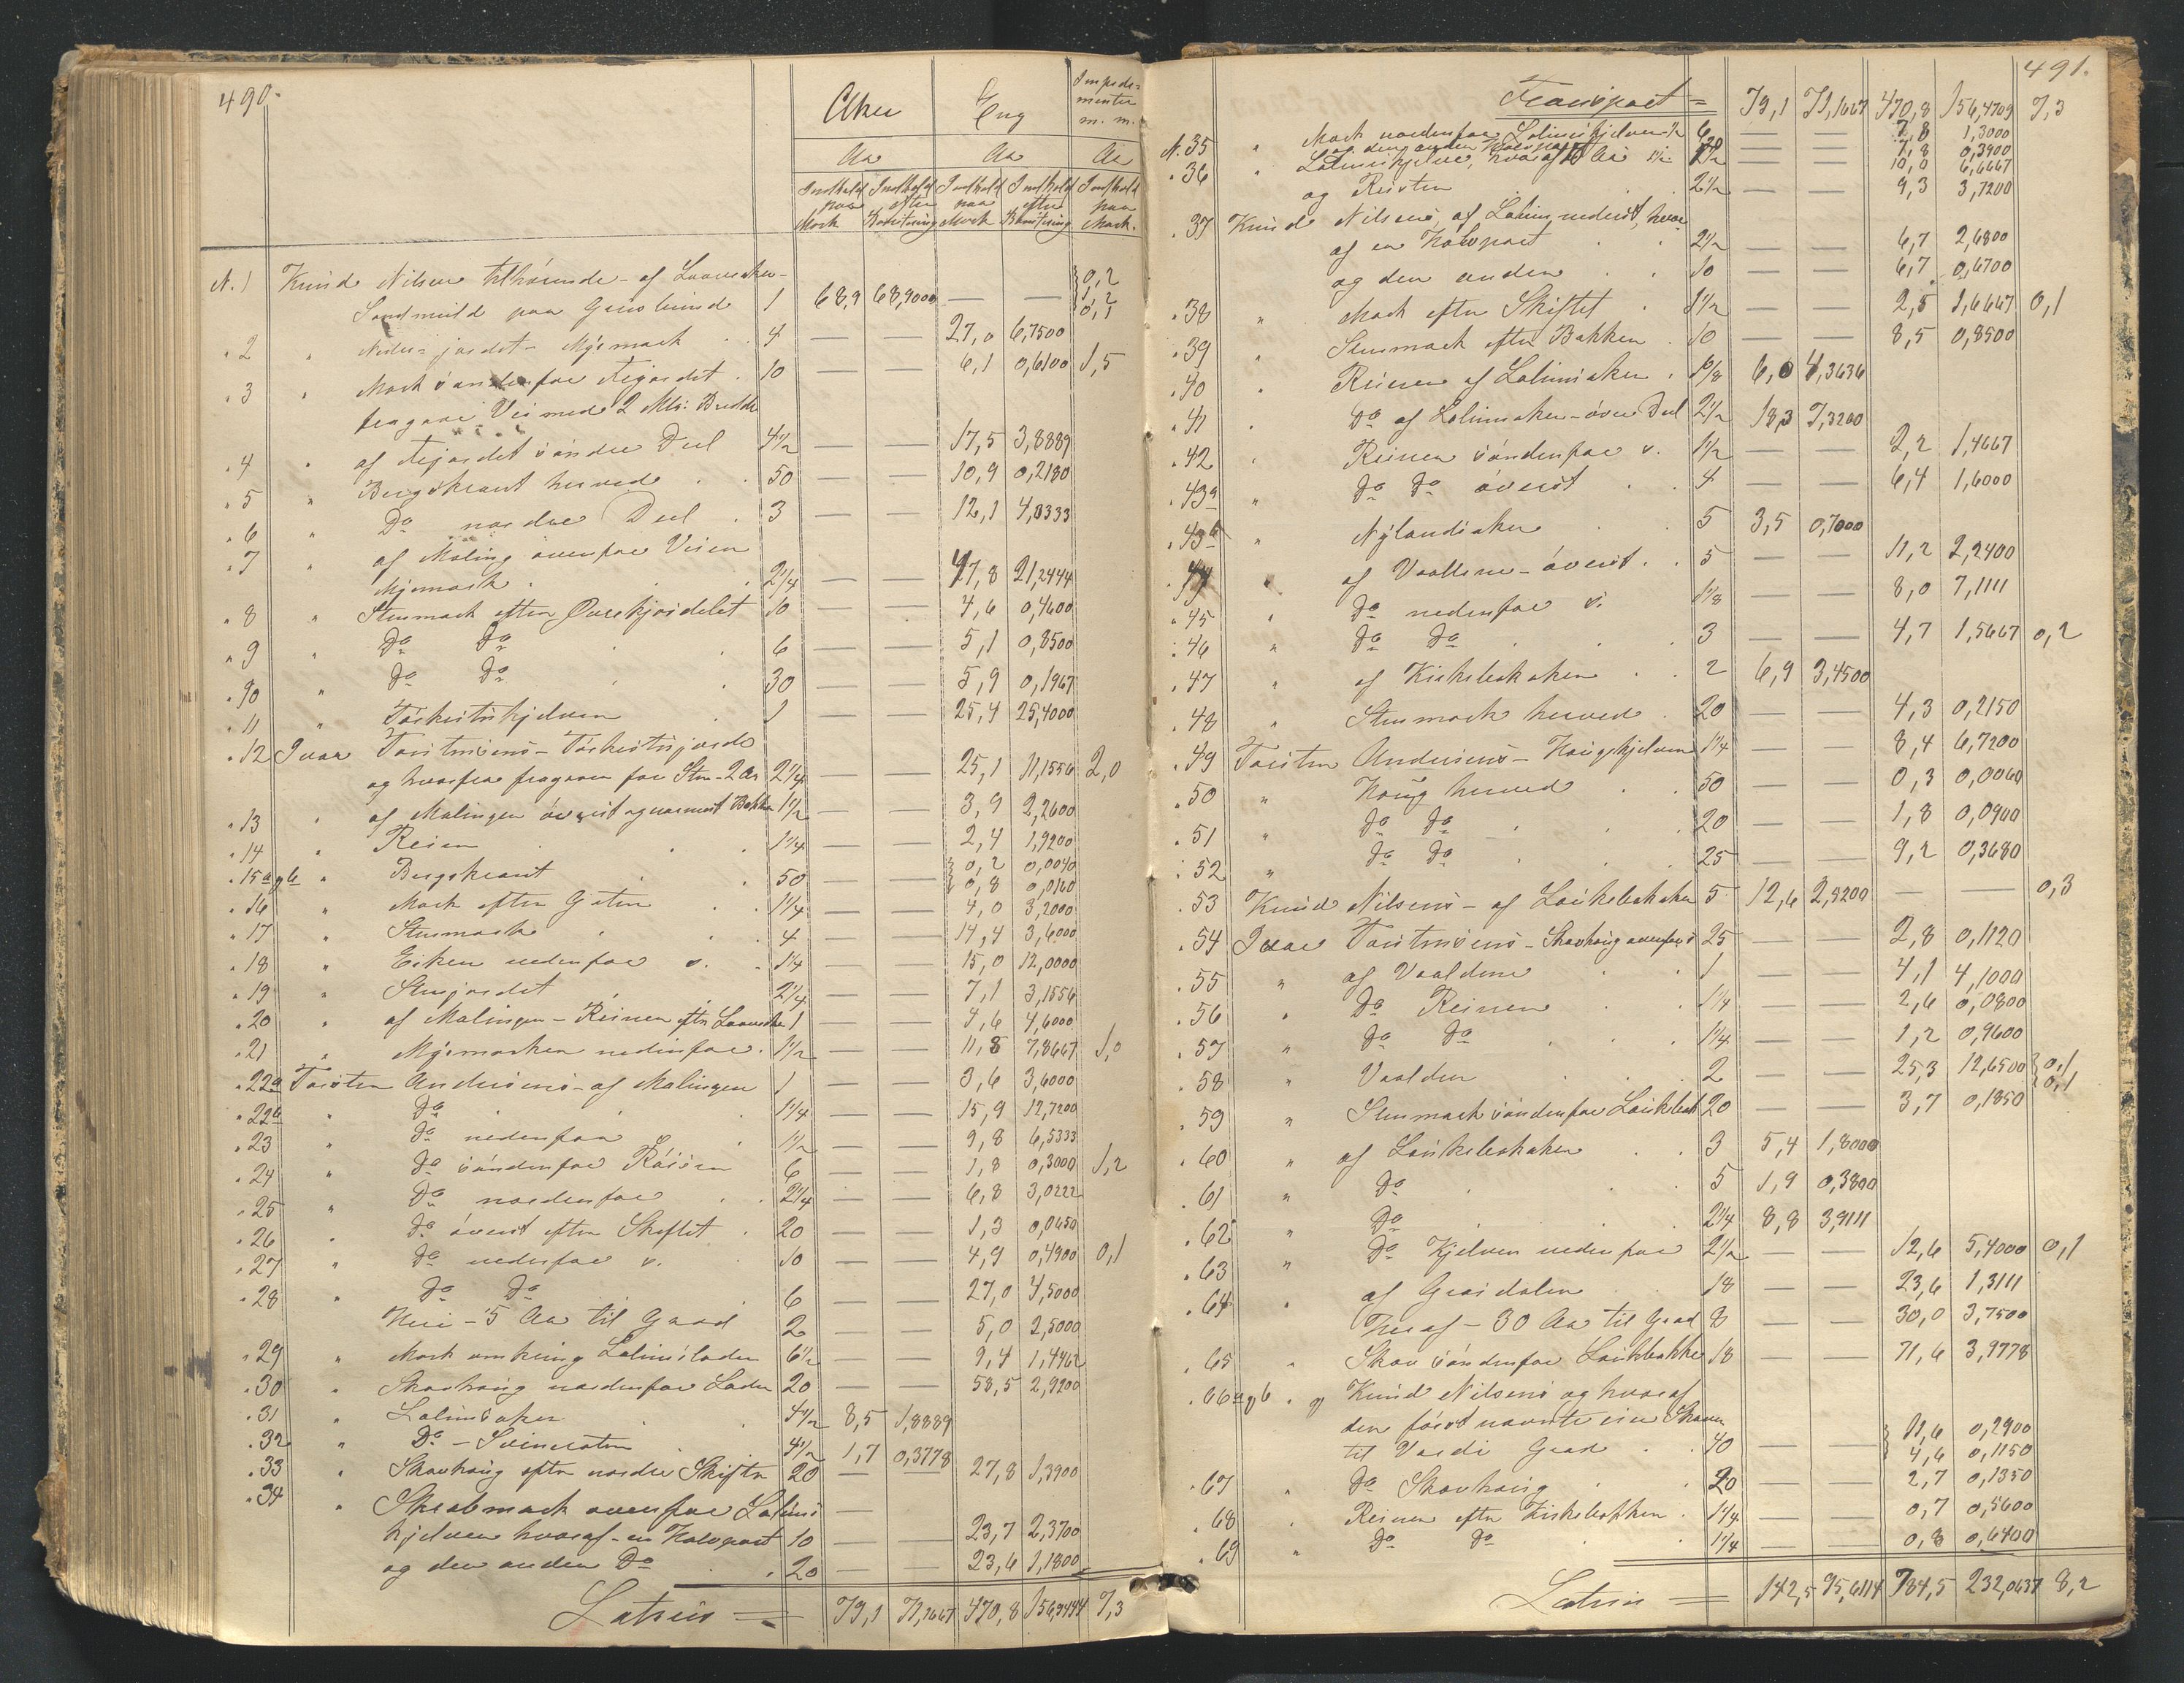 490.
Aker Eng Impede-
menter
m. m.
Aa Aa Aa
Indhold Indhold Indhold Indhold Indhold
paa efter paa efter paa
Mark Bonitering Mark Bonitering Mark.
N. 1 Knud Nilsen tilhørende - af 0,2
Sandmuld paa 1 68,9 68,9000 — — 1,2 0,1
" 2 " Nedre jordet - Myrmark 4 — — 27,0 6,7500
" 3 " Mark søndenfor 10 — — 6,1 0,6100 1,5
fragaar Vei med 2 Mtr: Bredde
" 4 " af søndre Deel 4 1/2 — — 17,5 3,8889
" 5 " Bergskrant herved 50 — — 10,9 0,2180
" 6 " Do nordre Deel 3 — — 12,1 4,0333
" 7 " af Maling ovenfor Veien
Myrmark 2 1/4 — — 47,8 21,2444
" 8 " Stenmark efter 10 — — 4,6 0,4600
" 9 " Do Do 6 — — 5,1 0,8500
" 10 " Do Do 30 — — 5,9 0,1967
" 11 " 1 — — 25,4 25,4000
" 12 Ivar Torstensens -
og hvorfra fragaar for Sten - 2 Ar 2 1/4 — — 25,1 11,1556 2,0
" 13 " af Malingen øverst og nærmest Bækken 1 1/2 3,9 2,2600
" 14 " Reien 1 1/4 — — 2,4 1,9200
" 15 a og b " Bergskrant 50 — — 0,2 0,0040
0,8 0,0160
" 16 " Mark efter Gaten 1 1/4 — — 4,0 3,2000
" 17 " Stenmark 4 — — 14,4 3,6000
" 18 " Eiken nedenfor s. 1 1/4 — — 15,0 12,0000
" 19 " Stenjordet 2 1/4 — — 7,1 3,1556
" 20 " af Malingen - Reinen efter 1 — — 4,6 4,6000
" 21 " Myrmarken nedenfor 1 1/2 — — 11,8 7,8667 1,0
" 22a Torsten Andersens - af Malingen 1 — — 3,6 3,6000
" 22b " Do 1 1/4 — — 15,9 12,7200
" 23 " Do nedenfor 1 1/2 — — 9,8 6,5333
" 24 " Do søndenfor Røisen 6 — — 1,8 0,3000 1,2
" 25 " Do nordenfor 2 1/4 — — 6,8 3,0222
" 26 " Do øverst efter Skiftet 20 — — 1,3 0,0650
" 27 " Do nedenfor s. 10 — — 4,9 0,4900 0,1
" 28 " Do Do 6 — — 27,0 4,5000
- 5 Aa til Grad 2 — — 5,0 2,5000
" 29 " Mark omkring Laden 6 1/2 — — 9,4 1,4462
" 30 " Skovhaug nordenfor Laden 20 — — 58,5 2,9200
" 31 " 4 1/2 8,5 1,8889
" 32 " Do - 4 1/2 1,7 0,3778
" 33 " Skovhaug efter nordre Skifte 20 — — 27,8 1,3900
" 34 " Skrabmark ovenfor
kjelven hvoraf - en Halvpart 10 — — 23,7 2,3700
og den anden Do 20 — — 23,6 1,1800
Latus = 79,1 71,1667 470,8 156,4 7,3
491.
Transport = 79,1 71,1667 470,8 156,4709 7,3
N. 35 " Mark nordenfor 6 — — 7,8 1,3000
og den anden Halvpart 20 — — 7,8 0,3900
" 36 " hvoraf 10 Aa 1 1/2 — — 10,0 6,6667
og Resten 2 1/2 — — 9,3 3,7200
" 37 Knud Nilsens, af nederst, hvor
af en Halvpart 2 1/2 — — 6,7 2,6800
og den anden 10 — — 6,7 0,6700
" 38 " Mark efter Skiftet 1 1/2 — — 2,5 1,6667 0,1
" 39 " Stenmark efter Bakken 10 — — 8,5 0,8500
" 40 " Reinen af 6,0 4,3636
" 41 " Do af - øvre Deel 2 1/2 18,3 7,3200
" 42 " Reinen søndenfor s. 1 1/2 — — 2,2 1,4667
" 43a " Do Do øverst 4 — — 6,4 1,6000
" 43b " Nylandsaker 5 3,5 0,7000
" 44 " af - øverst 5 — — 11,2 2,2400
" 45 " Do nedenfor s. 1 1/8 — — 8,0 7,1111
" 46 " Do Do 3 — — 4,7 1,5667 0,2
" 47 " af 2 6,9 3,4500
" 48 " Stenmark herved 20 — — 4,3 0,2150
" 49 Torsten Andersens - Haugkjelven 1 1/4 — — 8,4 6,7200
" 50 " Haug herved 50 — — 0,3 0,0060
" 51 " Do Do 20 — — 1,8 0,0900
" 52 " Do Do 25 — — 9,2 0,3680
" 53 Knud Nilsens - af 5 12,6 2,5200 — — 0,3
" 54 Ivar Torstensens - Skovhaug ovenfor s 25 — — 2,8 0,1120
" 55 " af Vaaldene 1 — — 4,1 4,1000
" 56 " Do Reinen 1 1/4 — — 2,6 0,0800
" 57 " Do Do 1 1/4 — — 1,2 0,9600
" 58 " Vaalden 2 — — 25,3 12,6500 0,1 0,1
" 59 " Stenmark søndenfor 20 — — 3,7 0,1850
" 60 " af 3 5,4 1,8000
" 61 " Do 5 1,9 0,3800
" 62 " Do 2 1/4 8,8 3,9111
" 63 " Do Kjelven nedenfor 2 1/2 — — 12,6 5,4000 0,1
" 64 " af 18 — — 23,6 1,3111
Heraf - 30 Aa til Grad 8 — — 30,0 3,7500
" 65 " Skov søndenfor 18 — — 71,6 3,9778
" 66 a og b " og Knud Nilsens og hvoraf
den først nævnte eier Skoven
til Værdi Grad 40 — — 11,6 0,2900
4,6 0,1150
" 67 " Do Skovhaug 20 — — 2,7 0,1350
" 68 " Reinen efter 1 1/4 — — 0,7 0,5600
" 69 " Do Do 1 1/4 — — 0,8 0,6400
Latus = 142,5 95,6114 784,5 232,0637 8,2